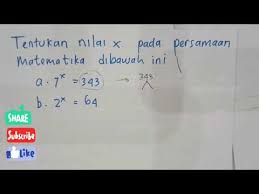 Tentukan nilai x pada persamaan
Matematika dibawah ini
a. 7ˣ = 343 → 343
b. 2ˣ = 64
SHARE
Subscribe
Like